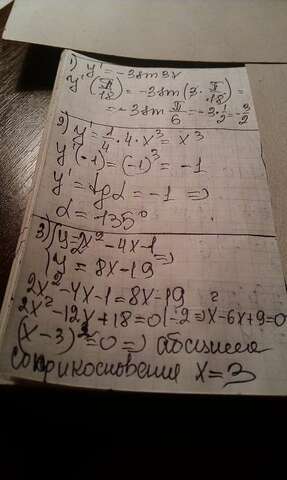 1) y' = -3sin3x
y'(π/18) = -3sin(3·π/18) =
= -3sin π/6 = -3·1/2 = -3/2
2) y' = 1/4·4·x³ = x³
y'(-1) = (-1)³ = -1
y' = tgα = -1 =>
α = 135°
3) {y = 2x² - 4x - 1 =>
y = 8x - 19
2x² - 4x - 1 = 8x - 19
2x² - 12x + 18 = 0 | ÷2 => x² - 6x + 9 = 0
(x - 3)² = 0 => абсцисса
соприкосновения x = 3